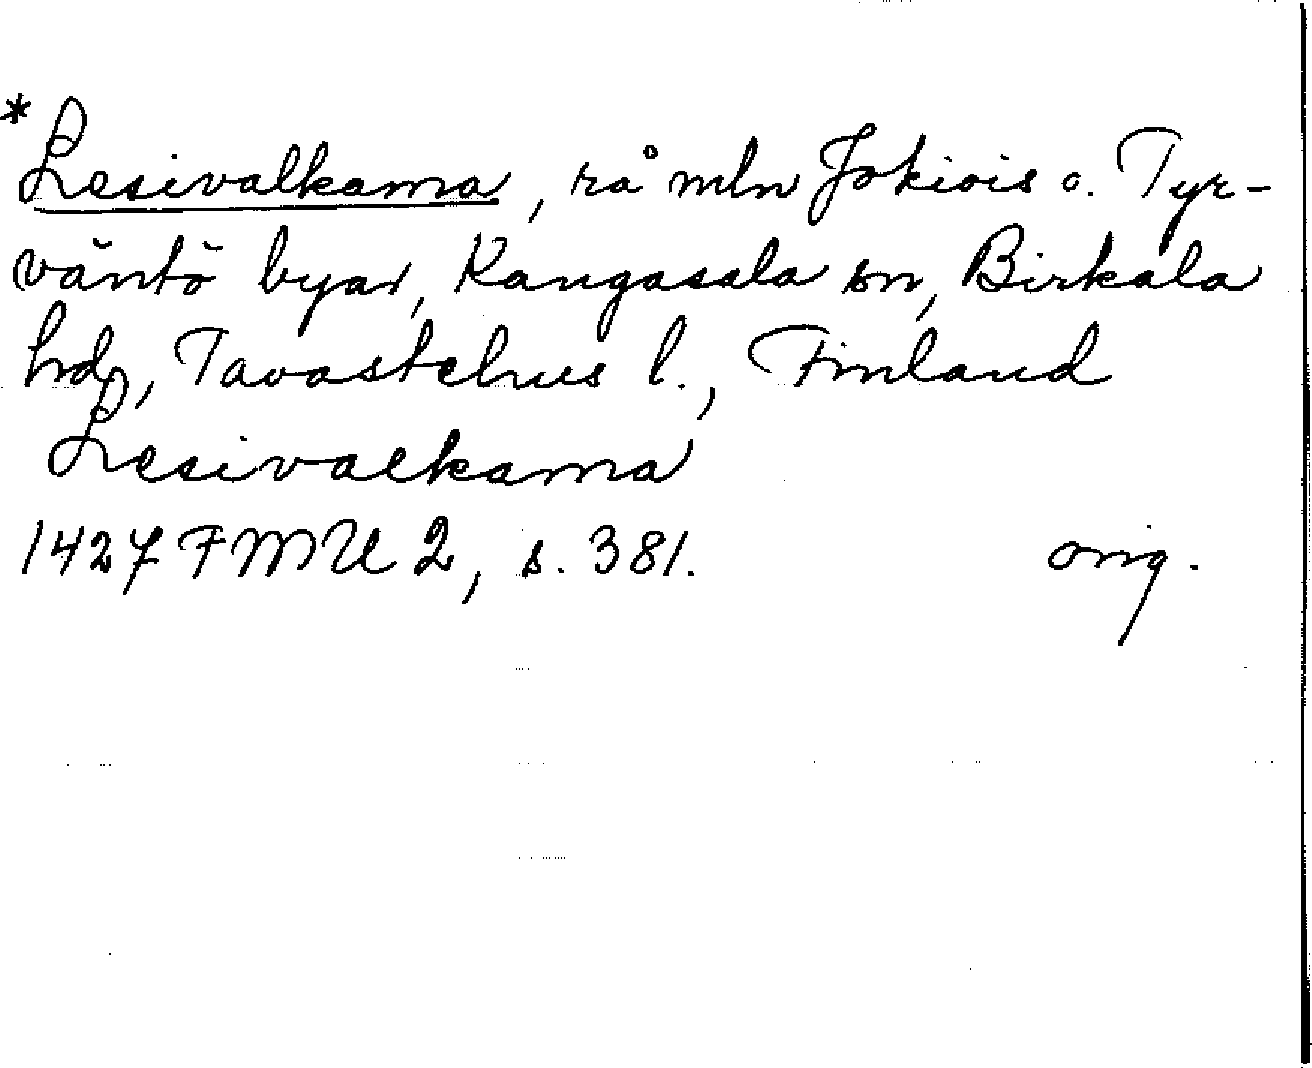 *Lesivalkama, rå mln Jokiois o. Tyr-
väntö byar, Kangasala sn, Birkala
hd, Tavastehus l., Finland
Lesivalkama
1427 FMU 2, s. 381. orig.